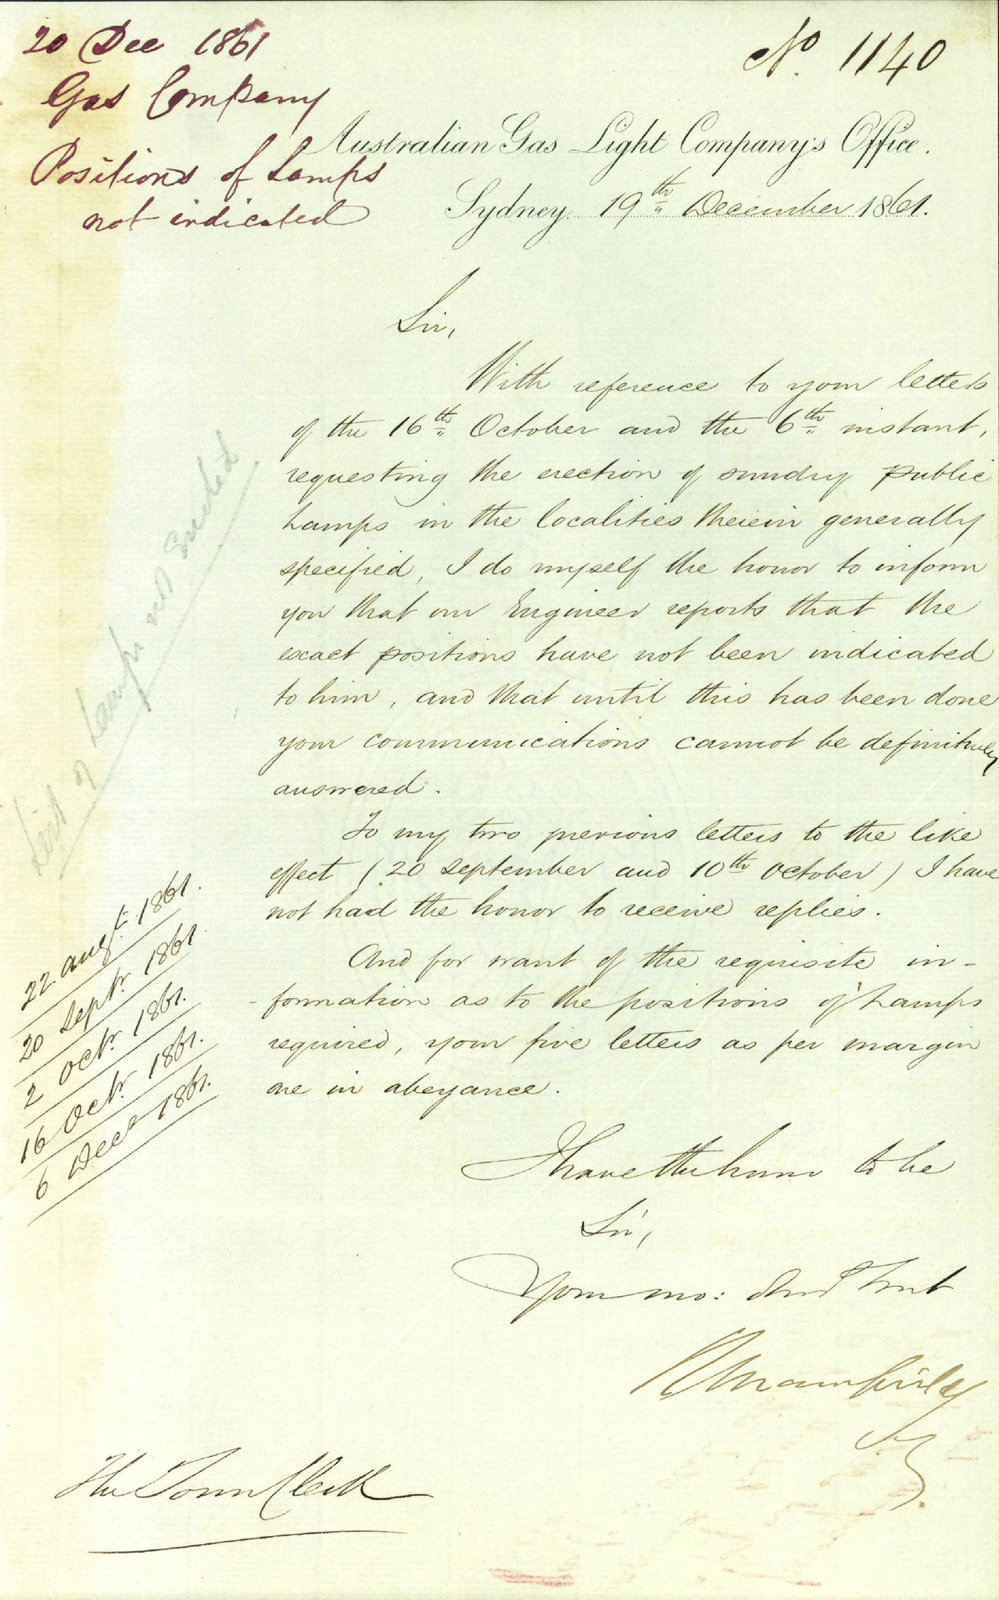 20 Dec 1861
Gas Company
Positions of Lamps
not indicated
No. 1140
Australian Gas Light Company's Office.
Sydney 19th December 1861.
Sir,
With reference to your letters
of the 16th October and the 6th instant,
requesting the erection of sundry public
Lamps in the localities therein generally
specified, I do myself the honor to inform
you that our Engineer reports that the
exact positions have not been indicated
to him, and that until this has been done
your communications cannot be definitively
answered.
To my two previous letters to the like
effect (20 September and 10th October) I have
not had the honor to receive replies.
And for want of the requisite in-
-formation as to the positions of Lamps
required, your five letters as per margin
are in abeyance.
List of Lamps not Erected
22 Augt. 1861.
20 Septr. 1861
2 Octr. 1861.
16 Octr. 1861.
6 Decr 1861.
I have the honor to be
Sir,
Your mo: Obed Servt
The Town Clerk